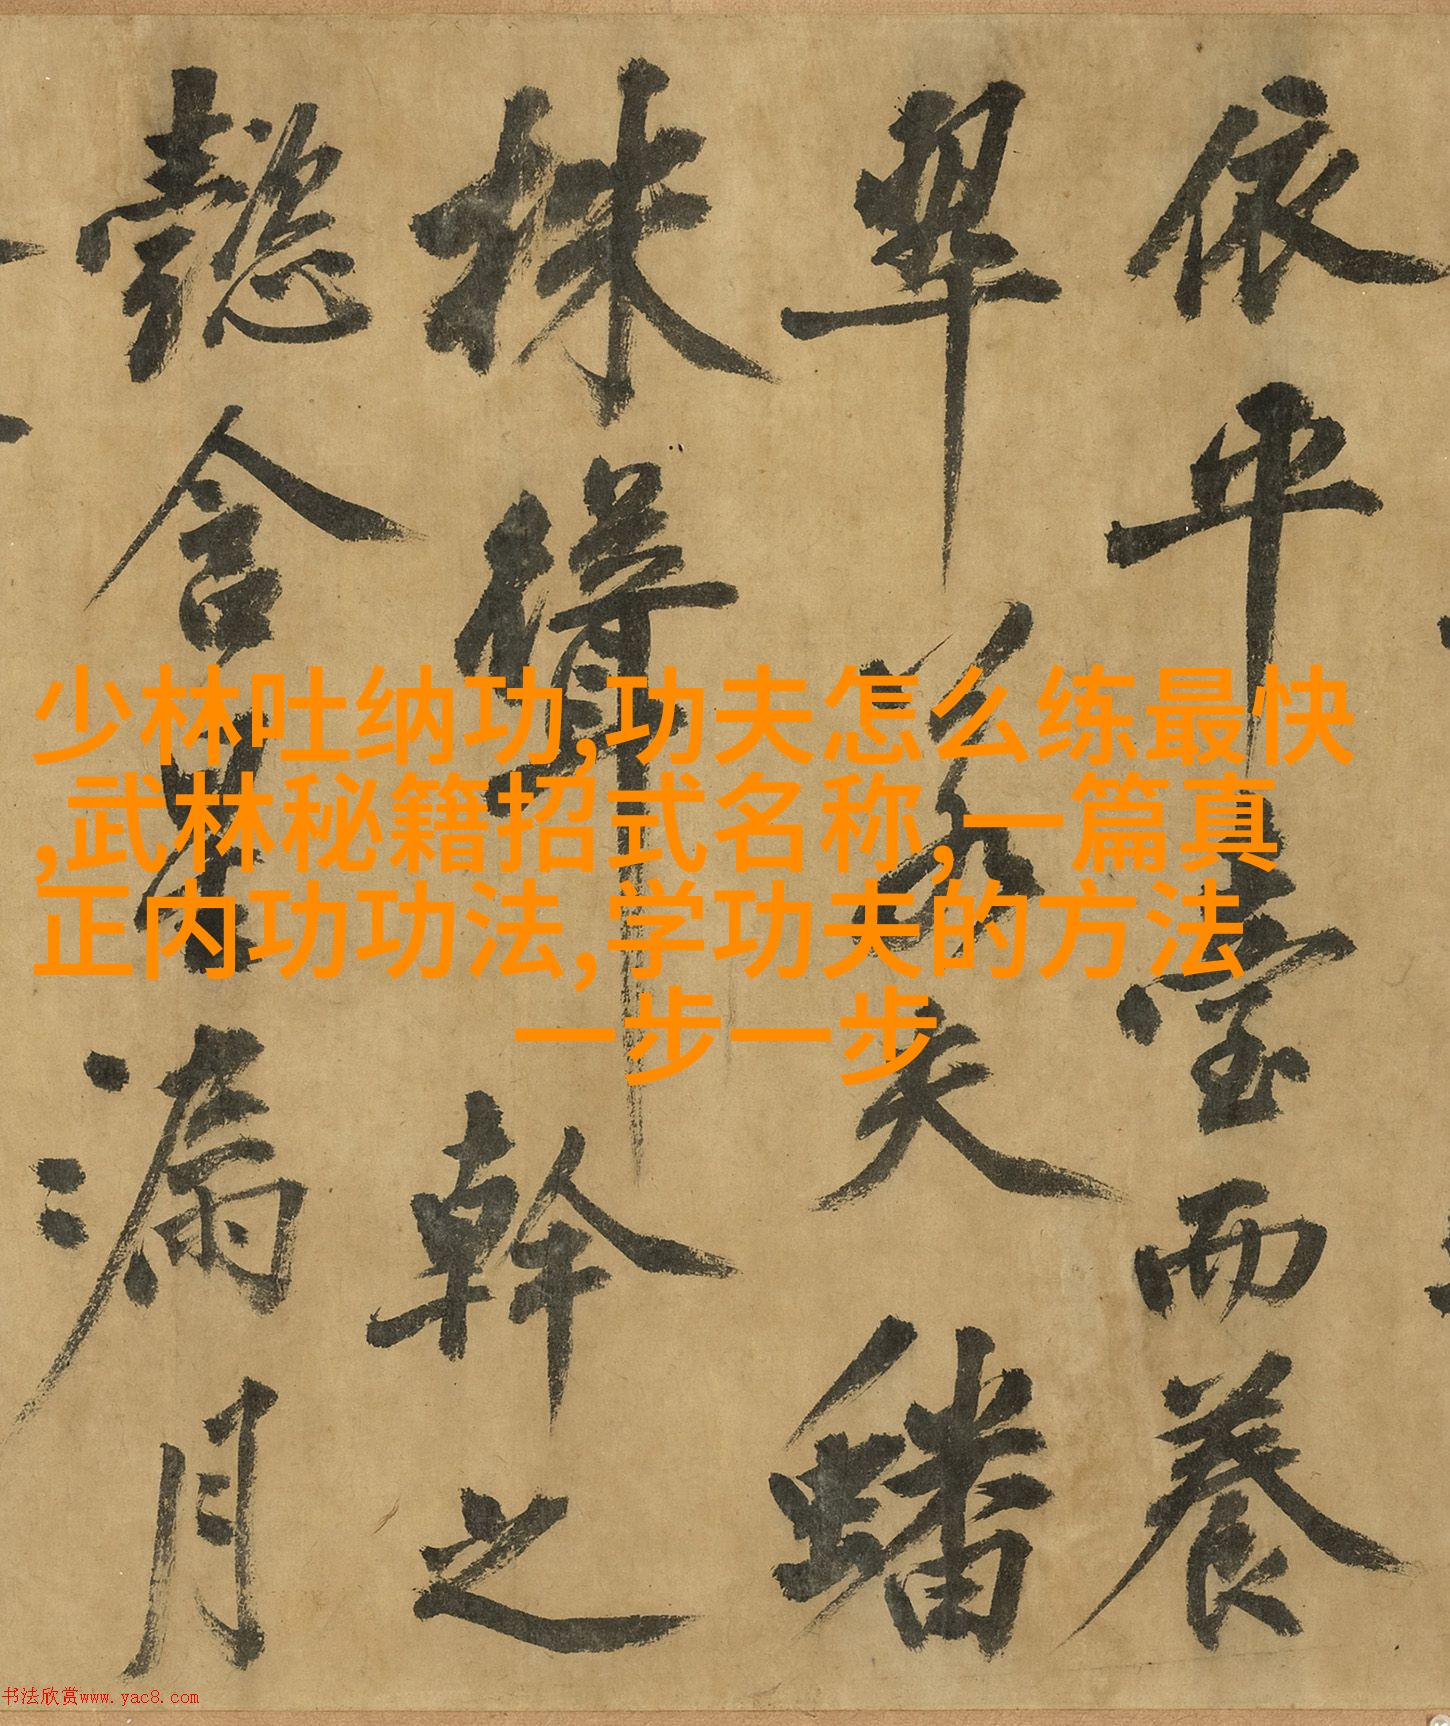 依平臺而養
翠若夫蟠
株聳幹之
懿含星漏月
少林吐纳功,功夫怎么练最快
,武林秘籍招式名称,一篇真
正内功功法,学功夫的方法
一步一步
书法欣赏www.yac8.com